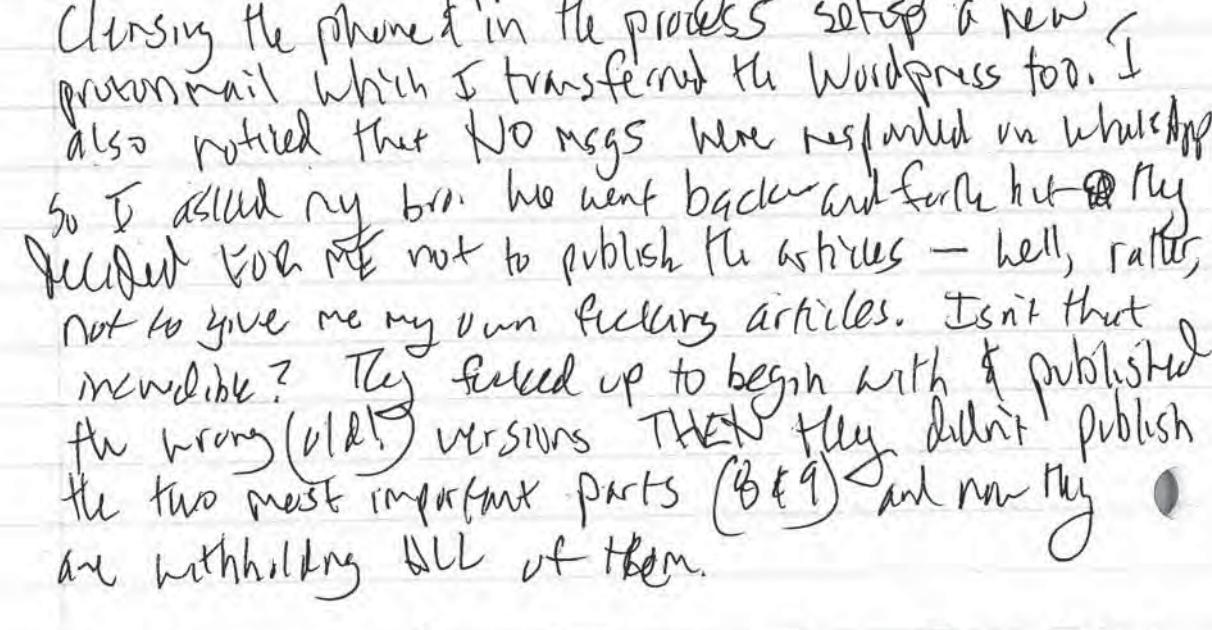 Clensing the phone & in the process setup a new
protonmail which I transferred the Wordpress too. I
also noticed that NO msgs were responded on WhatsApp
So I asked my bro. We went back and forth but they
decided FOR ME not to publish the articles — hell, rather,
not to give me my own fucking articles. Isn't that
incredible? They fucked up to begin with & published
the wrong (old!) versions THEN they didn't publish
the two most important parts (8 & 9) and now they
are withholding ALL of them.